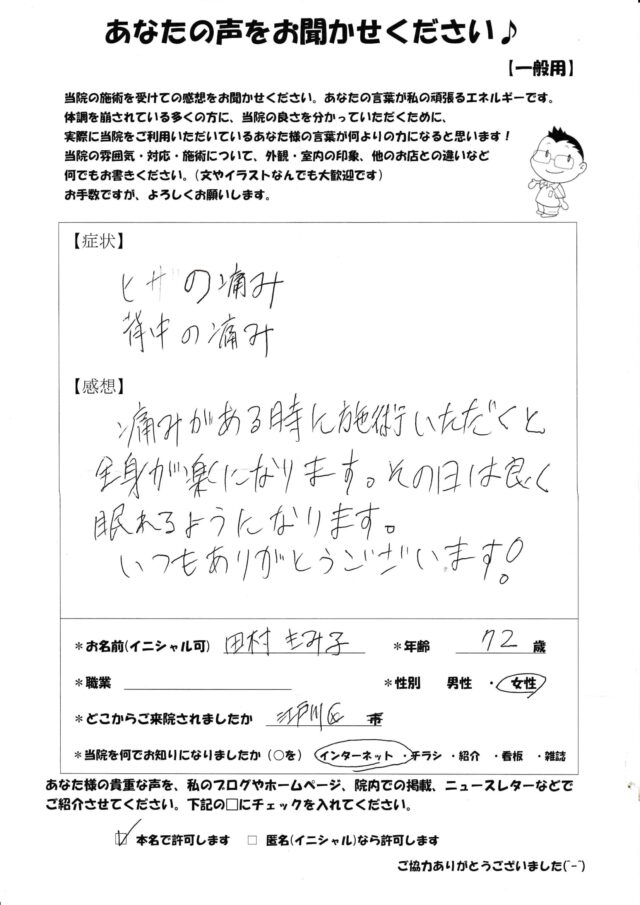 あなたの声をお聞かせください♪
【一般用】
当院の施術を受けての感想をお聞かせください。あなたの言葉が私の頑張るエネルギーです。
体調を崩されている多くの方に、当院の良さを分かっていただくために、
実際に当院をご利用いただいているあなた様の言葉が何よりの力になると思います!
当院の雰囲気・対応・施術について、外観・室内の印象、他のお店との違いなど
何でもお書きください。(文やイラストなんでも大歓迎です)
お手数ですが、よろしくお願いします。
【症状】
ヒザの痛み
背中の痛み
【感想】
痛みがある時に施術いただくと
全身が楽になります。その日は良く
眠れるようになります。
いつもありがとうございます!
*お名前(イニシャル可) 田村 きみ子 *年齢 72 歳
*職業 *性別 男性 ・ 女性
*どこからご来院されましたか 江戸川区 市
*当院を何でお知りになりましたか(○を) インターネット ・チラシ ・紹介 ・看板 ・雑誌
あなた様の貴重な声を、私のブログやホームページ、院内での掲載、ニュースレターなどで
ご紹介させてください。下記の□にチェックを入れてください。
☑ 本名で許可します □ 匿名(イニシャル)なら許可します
ご協力ありがとうございました(^-^)